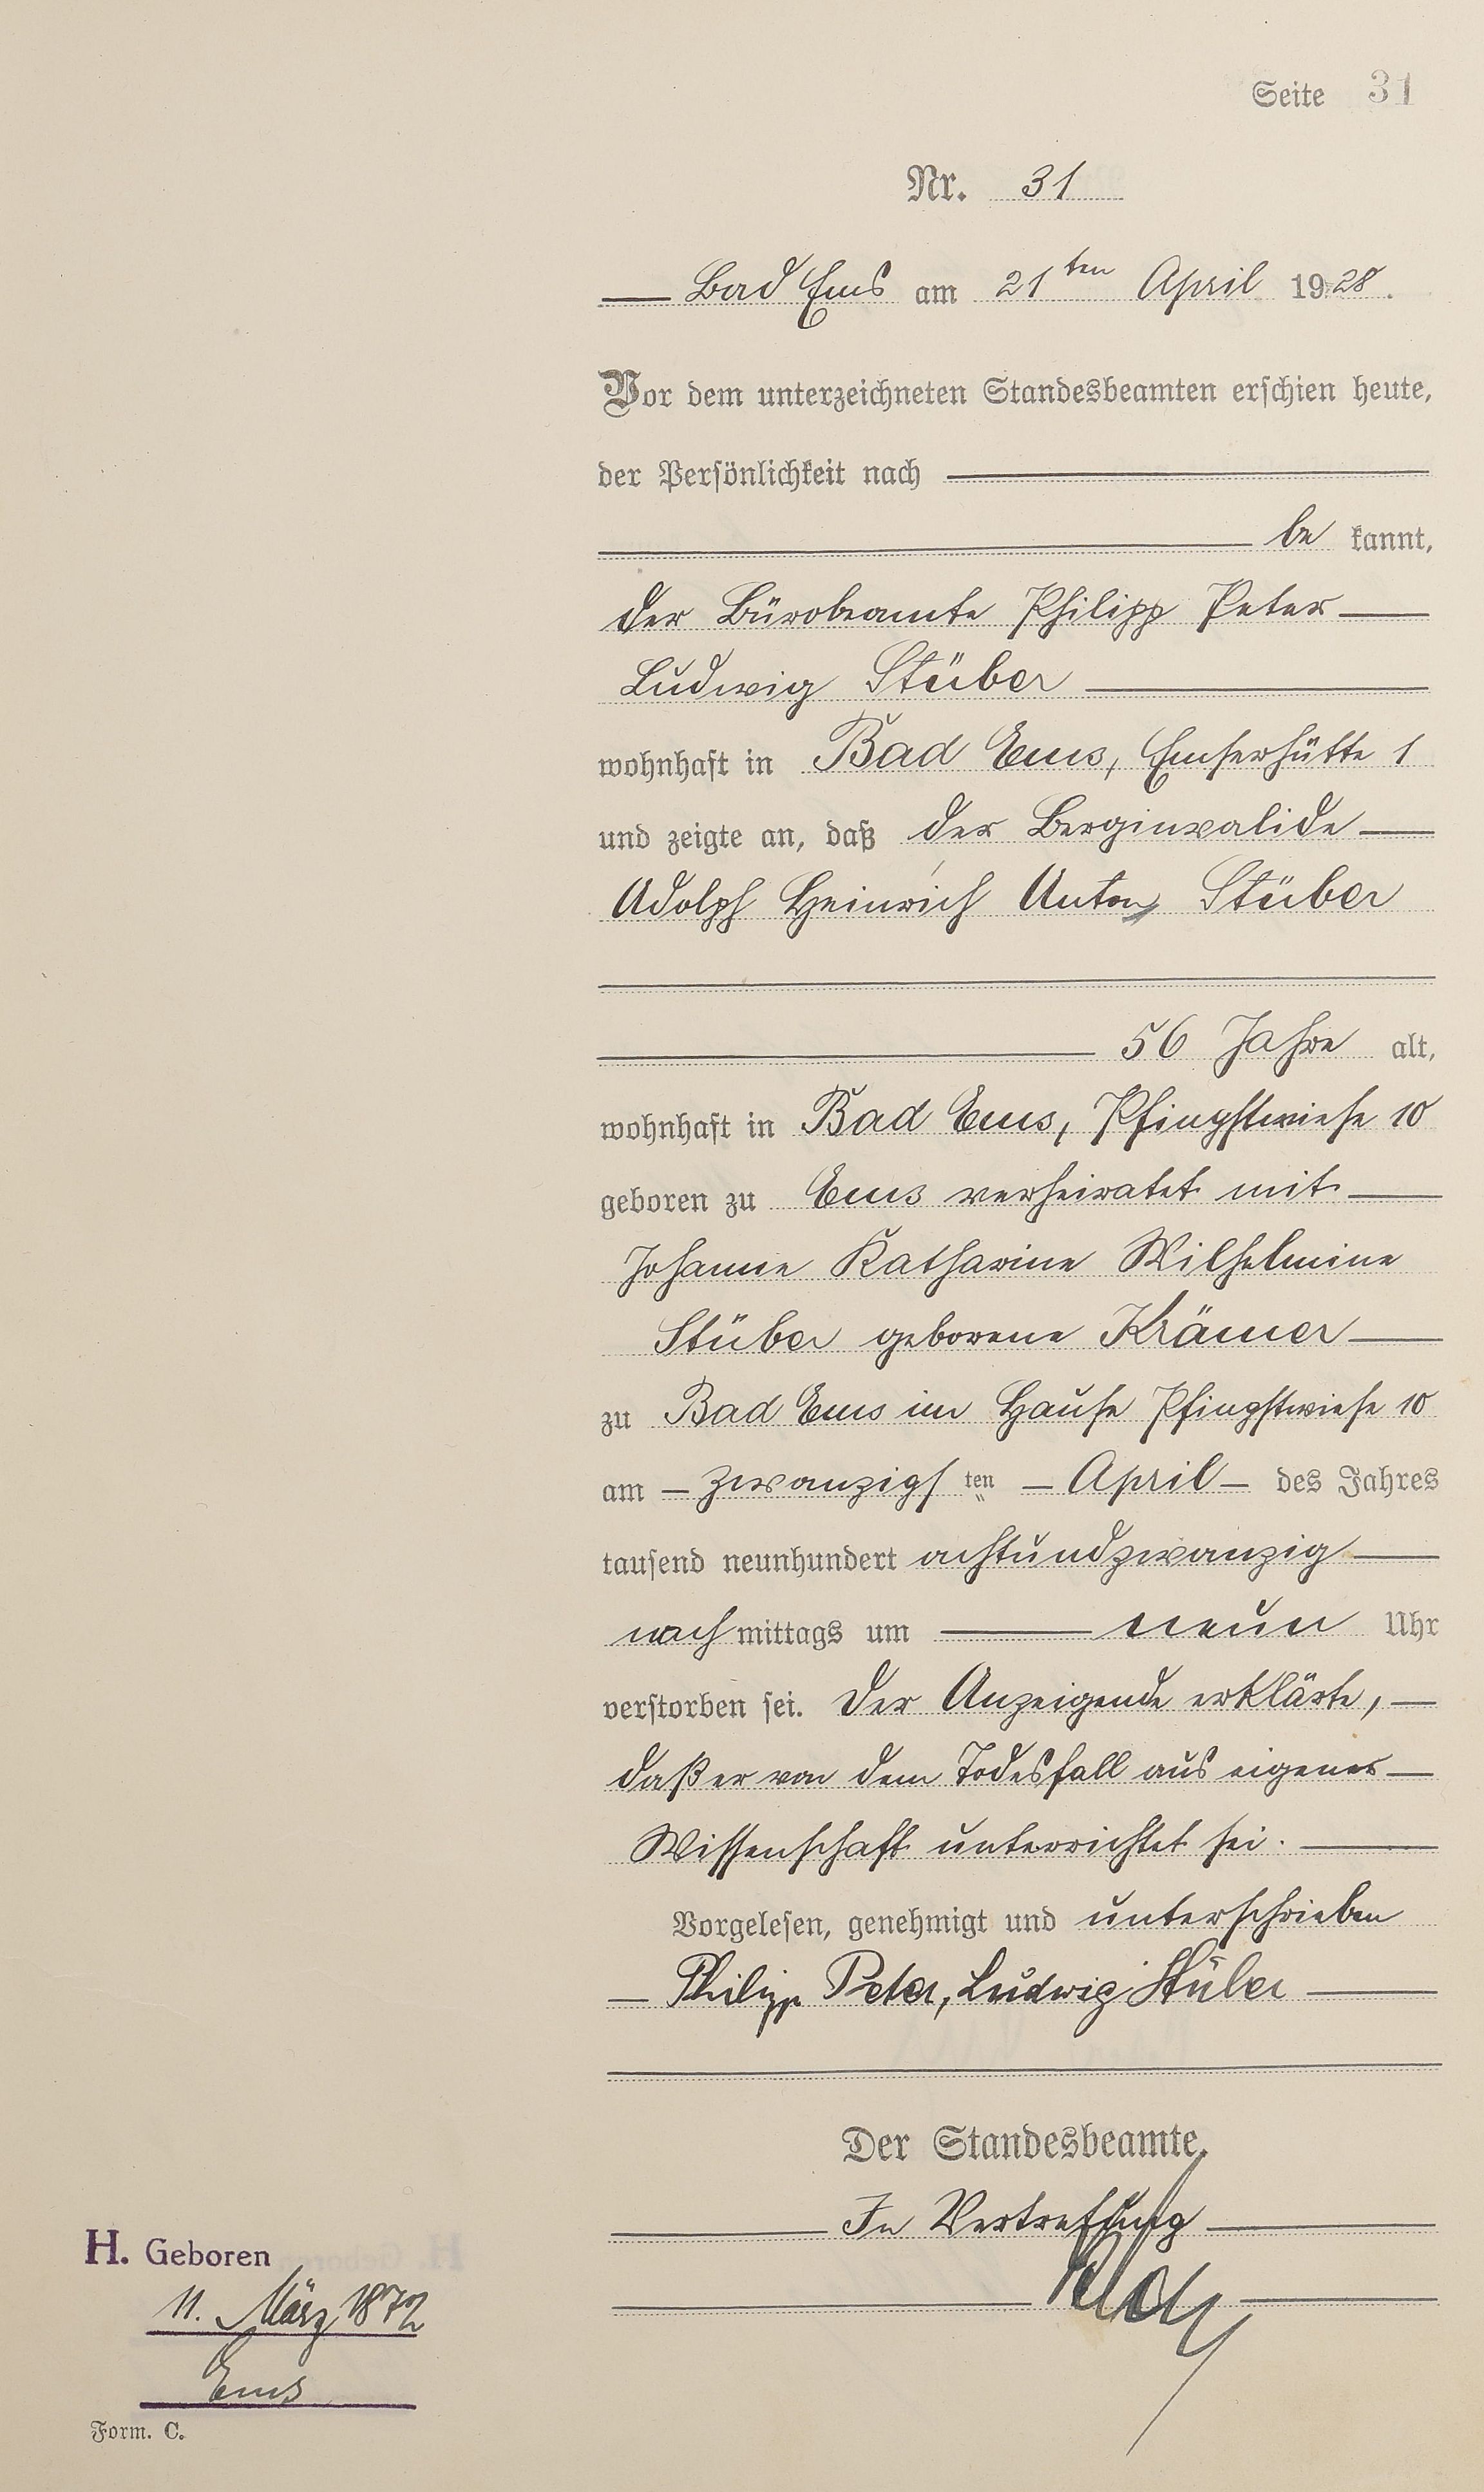 Seite 31
Nr. 31
Bad Ems am 21ten April 1928.
Vor dem unterzeichneten Standesbeamten erschien heute,
der Persönlichkeit nach
be kannt,
der Bürobeamte Philipp Peter
Ludwig Stüber
wohnhaft in Bad Ems, Emserhütte 1
und zeigte an, daß der Berginvalide
Adolph Heinrich Anton Stüber
56 Jahre alt,
wohnhaft in Bad Ems, Pfingstwiese 10
geboren zu Ems verheiratet mit
Johanne Katharine Wilhelmine
Stüber geborene Krämer
zu Bad Ems im Hause Pfingstwiese 10
am - zwanzigsten - April - des Jahres
tausend neunhundert achtundzwanzig
nachmittags um neun Uhr
verstorben sei. Der Anzeigende erklärte,
daß er von dem Todesfall aus eigener
Wissenschaft unterrichtet sei.
Vorgelesen, genehmigt und unterschrieben
Philipp Peter, Ludwig Stüber
Der Standesbeamte.
In Vertretung
H. Geboren
11. März 1872
Ems
Form. C.